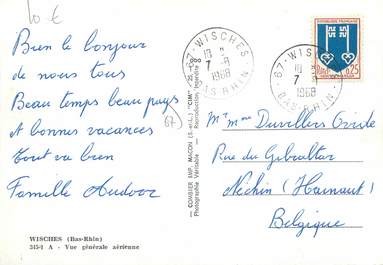 10 €
Bien le bonjour
de nous tous
Beau temps beau pays
et bonnes vacances
Tout va bien
Famille
WISCHES (Bas-Rhin)
345-1 A - Vue générale aérienne
COMBIER IMP. MACON (S.-et-L.) "CIM"
Photographie Véritable - Reproduction Interdite
67
67 - WISCHES
18 H
7 - 8
1968
BAS-RHIN
67 - WISCHES
18 H
7 - 8
1968
BAS-RHIN
REPUBLIQUE FRANÇAISE
0,25
POSTES
Mr Mme Duvillers Ovide
Rue du Gibraltar
Néchin (Hainaut)
Belgique